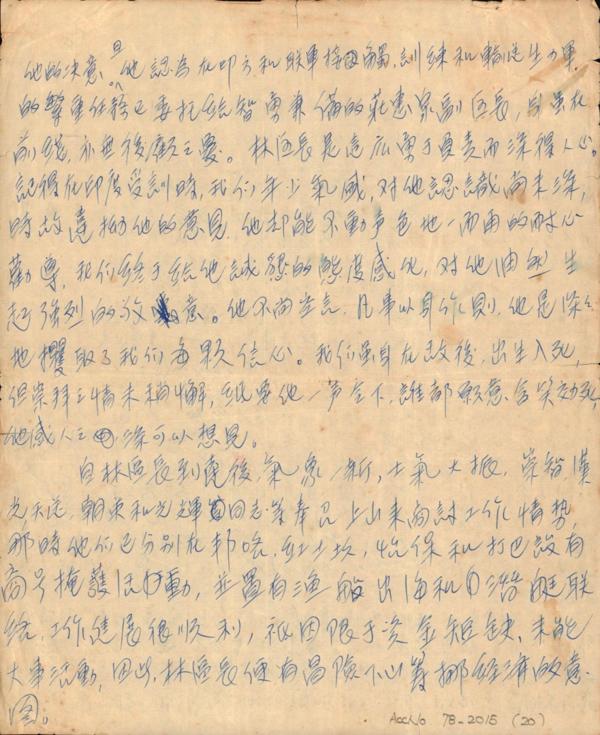 他的决意,且他認為在印方和联軍接觸,訓練和輸送生力軍
的繁重任務已委托给智勇兼備的莊惠泉副区長,自虽在
前綫,亦無後顧之憂。林区長是這広勇于負責而深得人心。
記得在印度受訓時,我们年少氣盛,对他認識尚未深,
時故違拗他的意見,他却能不動声色地一而再的耐心
勸導,我们终于给他誠懇的態度感化,对他油然生
起強烈的敬意。他不尚空言,凡事以身作則,他是深深
地攫取了我们每顆信心。我们虽身在敌後,出生入死,
但崇拜之情未稍懈,祇要他一声令下,誰都願意含笑効死,
他感人之深可以想見。
自林区長到達後,氣象一新,士氣大振,崇智,漢
光,天送,朝英和光輝回志等奉召上山來商討工作情势,
那時他们已分别在邦咯,紅土坎,怡保和打巴設有
商号掩護活動,並置有漁船出海和潜艇联
络,工作進展很順利,祇因限于資金短缺,未能
大事活動,因此,林区長便有冒險下山籌挪经濟的意
图。
Acc No 78-2015 (20)